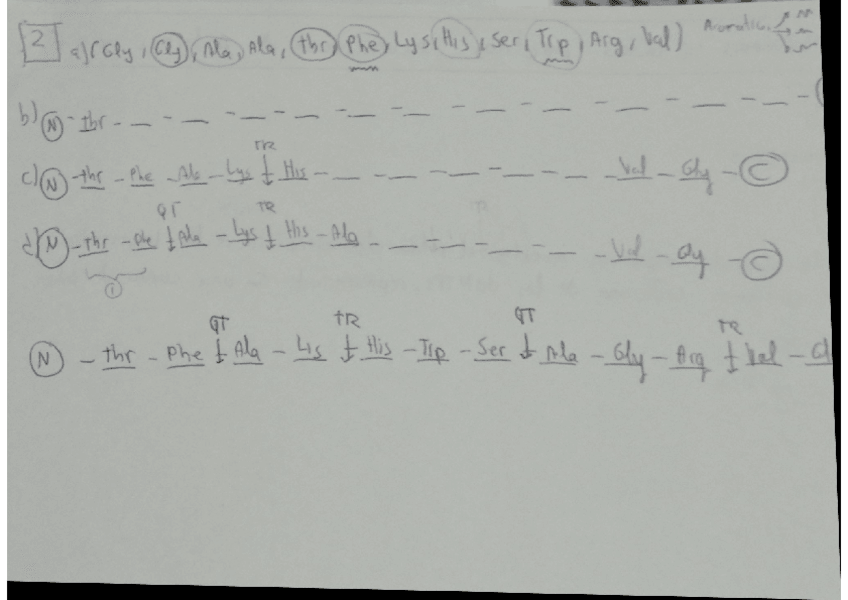 2 a) (Gly, Gly, Ala, Ala, thr, Phe, Lys, His, Ser, Trp, Arg, Val) Aromatic
b) N - thr - _ - _ - _ - _ - _ - _ - _ - _ - _ - _ - _ -
TR
c) N - thr - Phe - Ala - Lys ↓ His - _ - _ - _ - _ - _ - Val - Gly - C
QT TR
d) N - thr - Phe ↓ Ala - Lys ↓ His - Ala - _ - _ - _ - _ - Val - Gly - C
1
QT TR QT TR
N - thr - Phe ↓ Ala - Lis ↓ His - Trp - Ser ↓ Ala - Gly - Arg ↓ Val - Gl